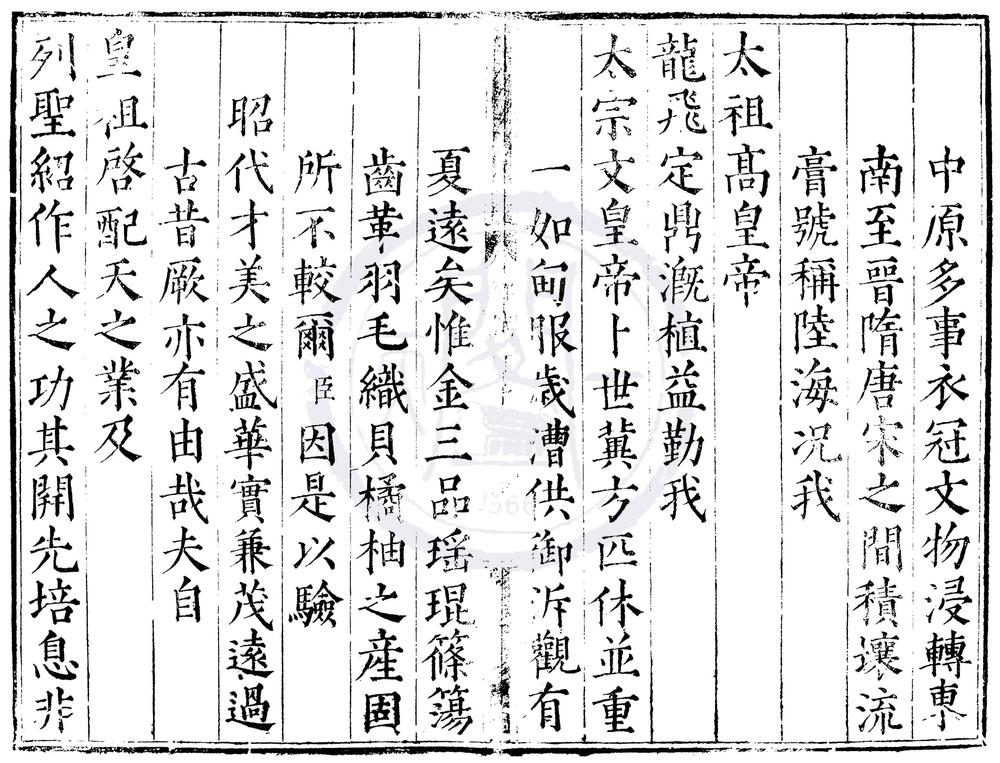 中原多事衣冠文物浸轉東
南至晉隋唐宋之間積壤流
膏號稱陸海况我
太祖高皇帝
龍飛定鼎溉植益勤我
太宗文皇帝卜世冀方匹休並重
一如甸服歲漕供御泝觀有
夏遠矣惟金三品瑶琨篠簜
齒革羽毛織貝橘柚之産固
所不較爾臣因是以驗
昭代才美之盛華實兼茂遠過
古昔厥亦有由哉夫自
皇祖啓配天之業及
列聖紹作人之功其開先培息非